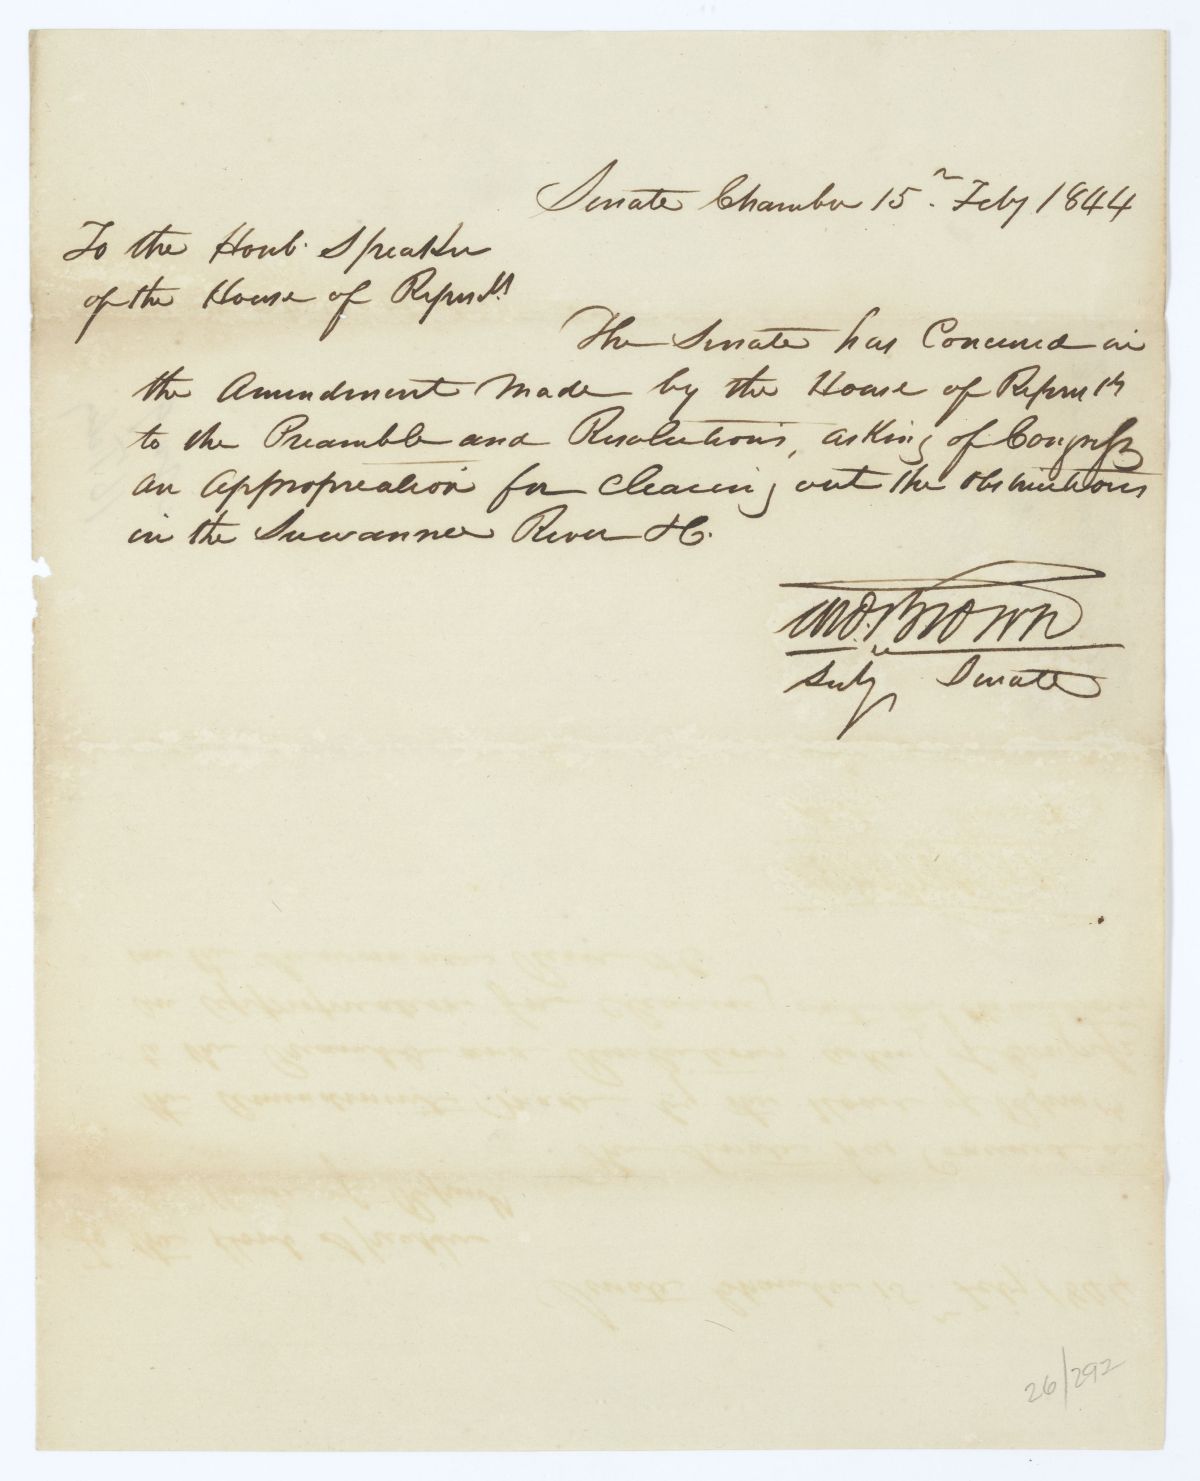 Senate Chamber 15th Feby 1844
To the Honb. Speaker
of the House of Represts.
The Senate has Concured in
the Amendment Made by the House of Represts
to the Preamble and Resolutions, asking of Congress
an appropriation for Clearing out the obstructions
in the Suwannee River &c.
Tho. Brown
Secty Senate
26/292